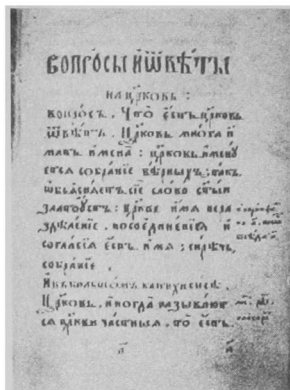 ВОПРО́СЫ И҆ Ѿ́ВѢ́ТЫ
на цр҃ковь :
вопро́съ . Что̀ є҆́сть цр҃ковь
Ѿвѣ́тъ . Цр҃ковь мно́га и҆
мать и҆мена̀ : цр҃ковь и҆менꙋ́
ется собра́нїе вѣ́рныхъ : такъ
ѡб̾ѧсня́етъ сїѐ сло́во ст҃ы́й
златоꙋ́стъ : цр҃кве и҆́мя не ра
здѣле́нїѧ , но соедине́нїѧ и҆
согла́сїѧ є҆́сть и҆́мя : си́рѣчь ,
собра́нїе
И҆ въ большо́мъ катихи́сисѣ .
Цр҃ковь и҆ногда̀ называ́ют
ся цр҃кви ча́стныѧ , то̀ є҆́сть